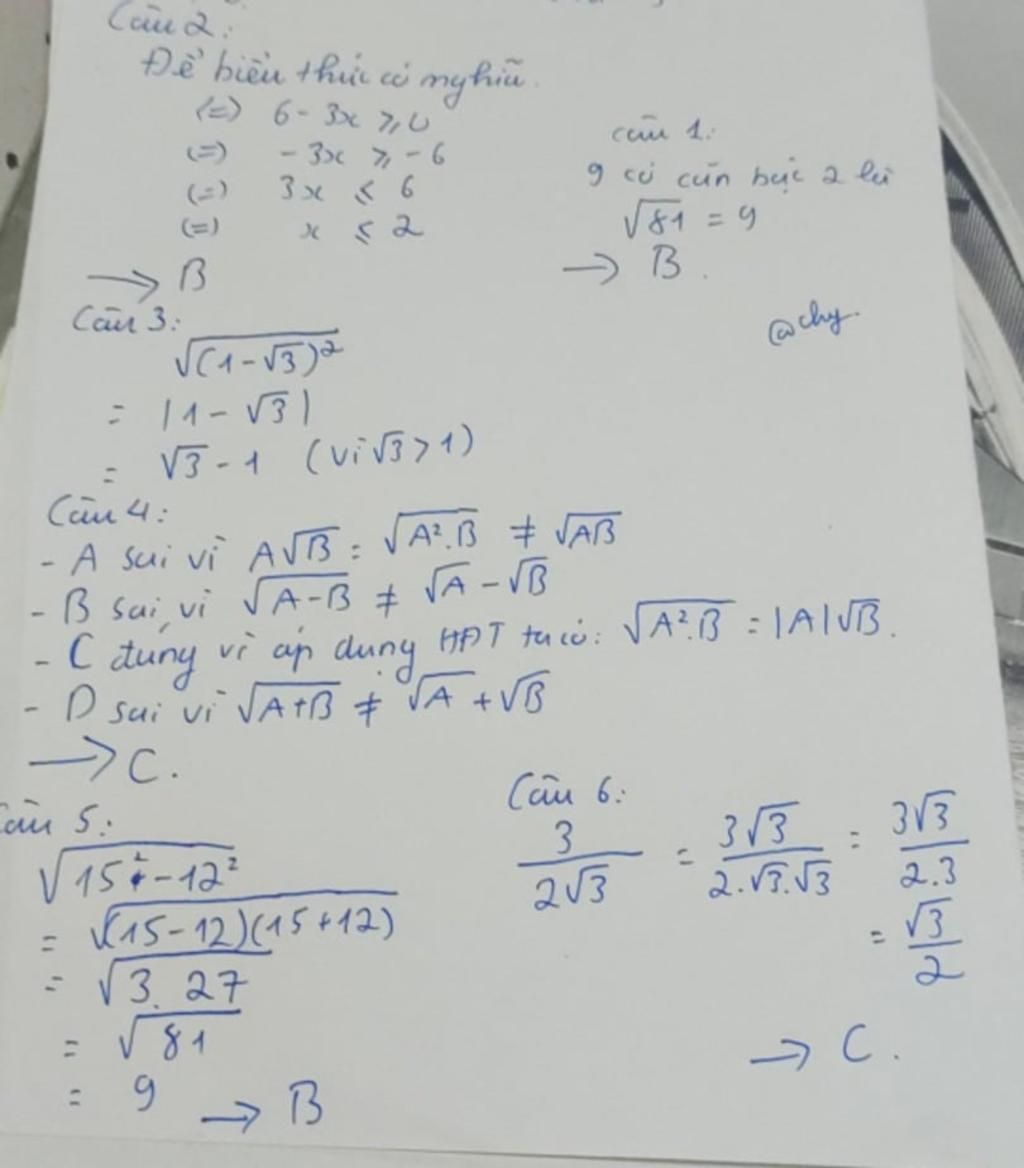 Câu 2:
Để biểu thức có nghĩa.
(=) 6 - 3x ≥ 0
(=) - 3x ≥ - 6
(=) 3x ≤ 6
(=) x ≤ 2
→ B
câu 1:
9 có căn bậc 2 là
√81 = 9
→ B.
@chy.
Câu 3:
√(1-√3)²
= |1 - √3|
= √3 - 1 (vì √3 > 1)
Câu 4:
- A sai vì A√B = √A².B ≠ √AB
- B sai, vì √A-B ≠ √A - √B
- C đúng vì áp dụng HĐT ta có: √A².B = |A|√B.
- D sai vì √A+B ≠ √A + √B
→ C.
Câu 5:
√15² - 12²
= √(15-12)(15+12)
= √3. 27
= √81
= 9 → B
Câu 6:
3/2√3 = 3√3/2.√3.√3 = 3√3/2.3
= √3/2
→ C.